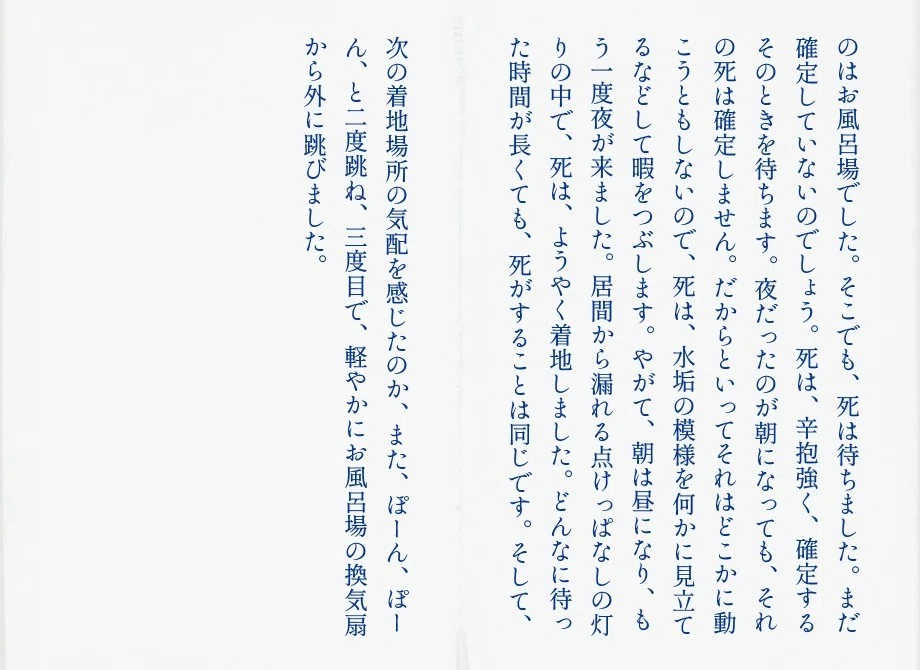 のはお風呂場でした。そこでも、死は待ちました。まだ
確定していないのでしょう。死は、辛抱強く、確定する
そのときを待ちます。夜だったのが朝になっても、それ
の死は確定しません。だからといってそれはどこかに動
こうともしないので、死は、水垢の模様を何かに見立て
るなどして暇をつぶします。やがて、朝は昼になり、も
う一度夜が来ました。居間から漏れる点けっぱなしの灯
りの中で、死は、ようやく着地しました。どんなに待っ
た時間が長くても、死がすることは同じです。そして、
次の着地場所の気配を感じたのか、また、ぽーん、ぽー
ん、と二度跳ね、三度目で、軽やかにお風呂場の換気扇
から外に跳びました。